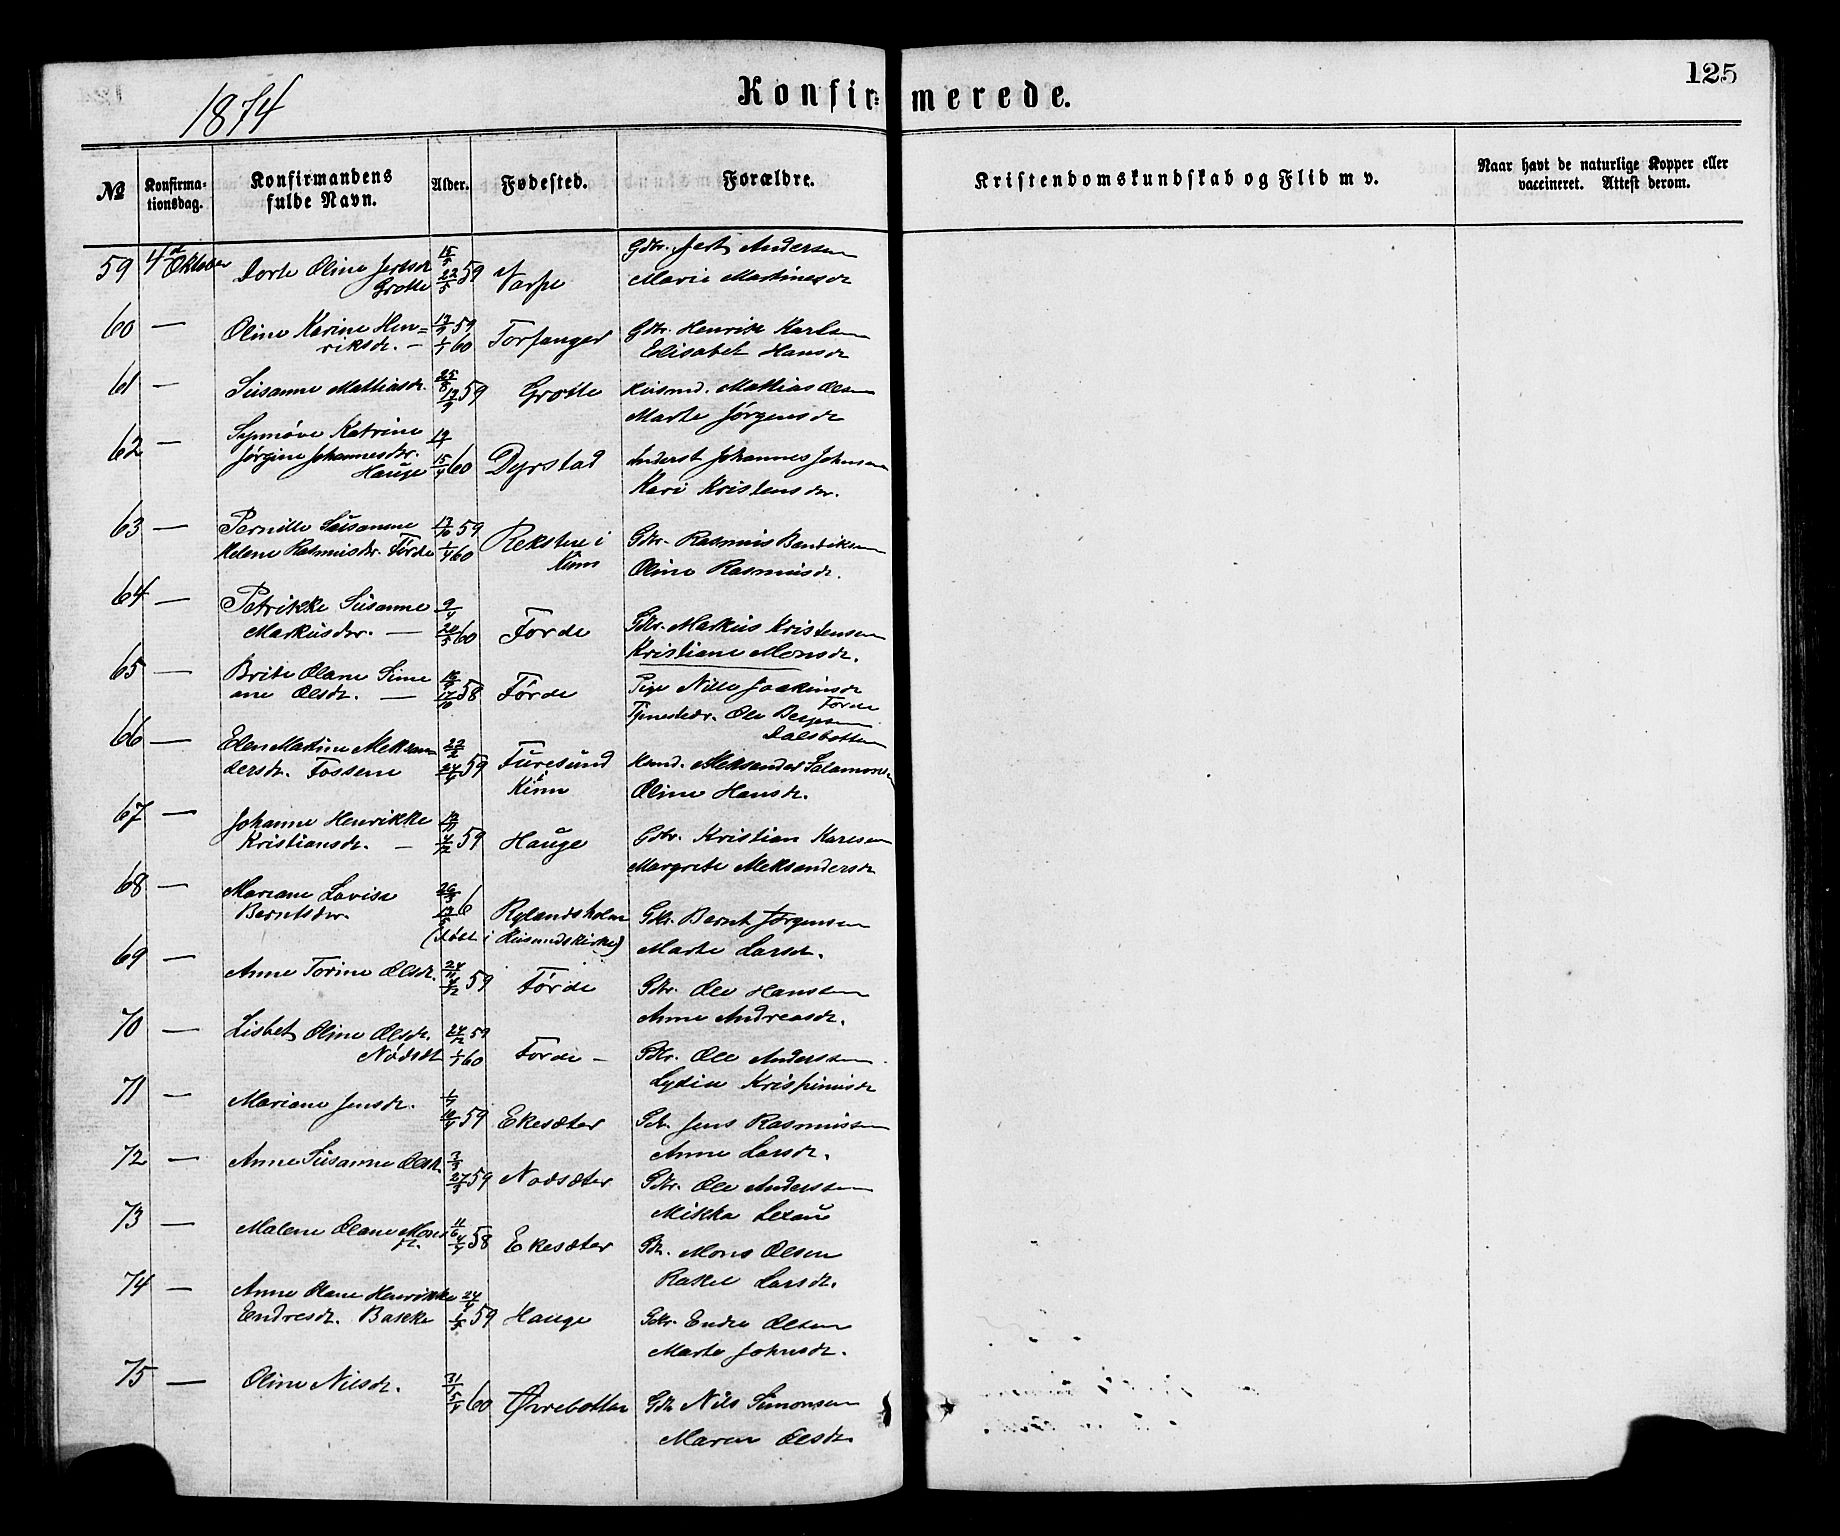 1874
Konfir= merede.
125
No
Konfirma-
tionsdag.
Konfirmandens
fulde Navn.
Alder.
Fødested.
Forældre.
Kristendomskundskab og Flid m v.
Naar havt de naturlige Kopper eller
vaccineret. Attest derom.
59 4de Oktober Dorte Oline Jertsdr Grotle 59 Varpe
Gdbr. Jert Andersen
Marie Martinesdr
60 — Oline Karine Hen=
riksdr. — 59 1/1 60 Torfanger
Gbr. Henrik Karlsen
Elisabet Hansdr
61 — Susanne Mathiasdr. 25/8 59 Grotle
Husmd. Mathias Olsen
Marte Jørgensdr
62 — Synnøve Katrine
Jørgine Johannesdtr.
Hauge 15/4 60 Dyrstad
Inderst Johannes Johnsen
Kari Kristensdtr.
63 — Pernille Susanne
Helene Rasmusdtr. Førde 59 1/4 60 Rekstene i
Kinn
Gbr. Rasmus Bendiksen
Oline Rasmusdr.
64 — Petrikke Susanne
Markusdtr. — 60 Førde
Gbr. Markus Kristensen
Kristiane Monsdr.
65 — Brite Olane Sime
ane Olsdr. — 58 Førde
Pige Nille Joakimsdr
Førde
Tjenestedr. Ole Bergesen
Dalsbotten
66 — Elen Martine Aleksan
dersdr. Fossem 22/2 24/4 59 Furesund
i
Kinn
Husmd. Aleksander Salamonsen
Oline Hansdr.
67 — Johanne Henrikke
Kristiansdr. — 4/12 59 Hauge
Gdbr. Kristian Karlsen
Margrete Aleksandersdr
68 — Mariane Lovise
Berntsdtr. Rylandsholm
(døbt i Husundskirke)
Gbr. Bernt Jørgensen
Marte Larsdr.
69 — Anne Torine Olsdr. 24/11 4/12 59 Førde
Gbr. Ole Hanssen
Anne Andreasdr.
70 — Lisbet Oline Olsdr.
Nødsæt 24/12 59 1/1 60 Førde —
Gbr. Ole Anderssen
Lydia Krispinusdr
71 — Mariane Jensdr. 59 Ekesæter
Gbr. Jens Rasmussen
Anne Larsdr.
72 — Anne Susanne Olsdr. 27/3 59 Nodsæter
Gbr. Ole Anderssen
Mikka Lexau
73 — Malene Olane Mons
dr. 11/6 4/7 58 Ekesæter
Gbr. Mons Olsen
Rakel Larsdr.
74 — Anne Olane Henrikke
Endresdr. Bakke 24/4 1/5 59 Hauge
Gdbr. Endre Olsen
Marte Johnsdr.
75 — Oline Nilsdr. 31/1 5/4 60 Øvrebotten
Gbr Nils Simonsen
Maren Olsdr.